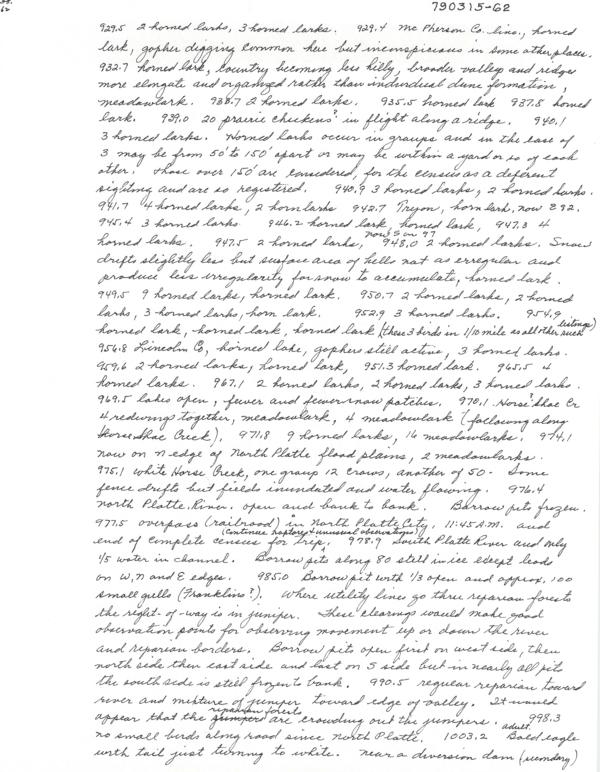 62
790315-62
929.5 2 horned larks, 3 horned larks. 929.4 McPherson Co. line, horned
lark, gopher digging common here but inconspicious in some other places.
932.7 horned lark, Country becoming less hilly, broader valleys and ridges
more elongate and organized rather than individual dune formation,
meadowlark. 933.7 2 horned larks. 935.5 horned lark 937.8 horned
lark. 939.0 20 prairie chickens? in flight along a ridge. 940.1
3 horned larks. Horned larks occur in groups and in the case of
3 may be from 50' to 150' apart or may be within a yard or so of each
other. Those over 150' are considered, for the census as a deferent
sighting and are so registered. 940.9 3 horned larks, 2 horned larks.
941.7 4 horned larks, 2 horn larks 942.7 Tryon, horn lark, now E 92.
945.4 3 horned larks. 946.2 horned lark, horned lark, 947.3 4
horned larks. 947.5 2 horned larks, now S on 97 948.0 2 horned larks. Snow
drifts slightly less but surface area of hells not as erregular and
produce less irregularity for snow to accumulate, horned lark.
949.5 9 horned larks, horned lark. 950.7 2 horned larks, 2 horned
larks, 3 horned larks, horn lark. 952.9 3 horned larks. 954.9
horned lark, horned lark, horned lark (these 3 birds in 1/10 mile as all other such listings)
956.8 Lincoln Co, horned lake, gophers still active, 3 horned larks.
959.6 2 horned larks, horned lark, 951.3 horned lark. 965.5 4
horned larks. 967.1 2 horned larks, 2 horned larks, 3 horned larks.
969.5 lakes open, fewer and fewer snow patches. 970.1 Horse? Shoe Cr
4 redwings together, meadowlark, 4 meadowlark (following along
Horse Shoe Creek). 971.8 9 horned larks, 16 meadowlarks. 974.1
now on N edge of North Platte flood plains, 2 meadowlarks.
975.1 White Horse Creek, one group 12 crows, another of 50- Some
fence drifts but fields inundated and water flowing. 976.4
North Platte River. open and bank to bank. Borrow pits frozen.
977.5 overpass (railroad) in North Platte City, 11:45 A.M. and
end of complete census for trip. (Continue raptors & unusual observations) 978.9 South Platte River and only
1/5 water in channel. Borrow pits along 80 still in ice except leads
on W, N and E edges. 985.0 Borrow pit with 1/3 open and approx. 100
small gulls (Franklins?). Where utility lines go thru reparian forests
the right-of-way is in juniper. These clearings would make good
observation points for observing movement up or down the river
and reparean borders. Borrow pits open first on west side, then
north side then east side and last on S side but in nearly all pits
the south side is still frozen to bank. 990.5 regular reparian toward
river and mixture of juniper toward edge of valley. It would
appear that the reparian forests are crowding out the junipers. 998.3
no small birds along road since North Platte. 1003.2 adult Bald eagle
with tail just turning to white. Near a diversion dam